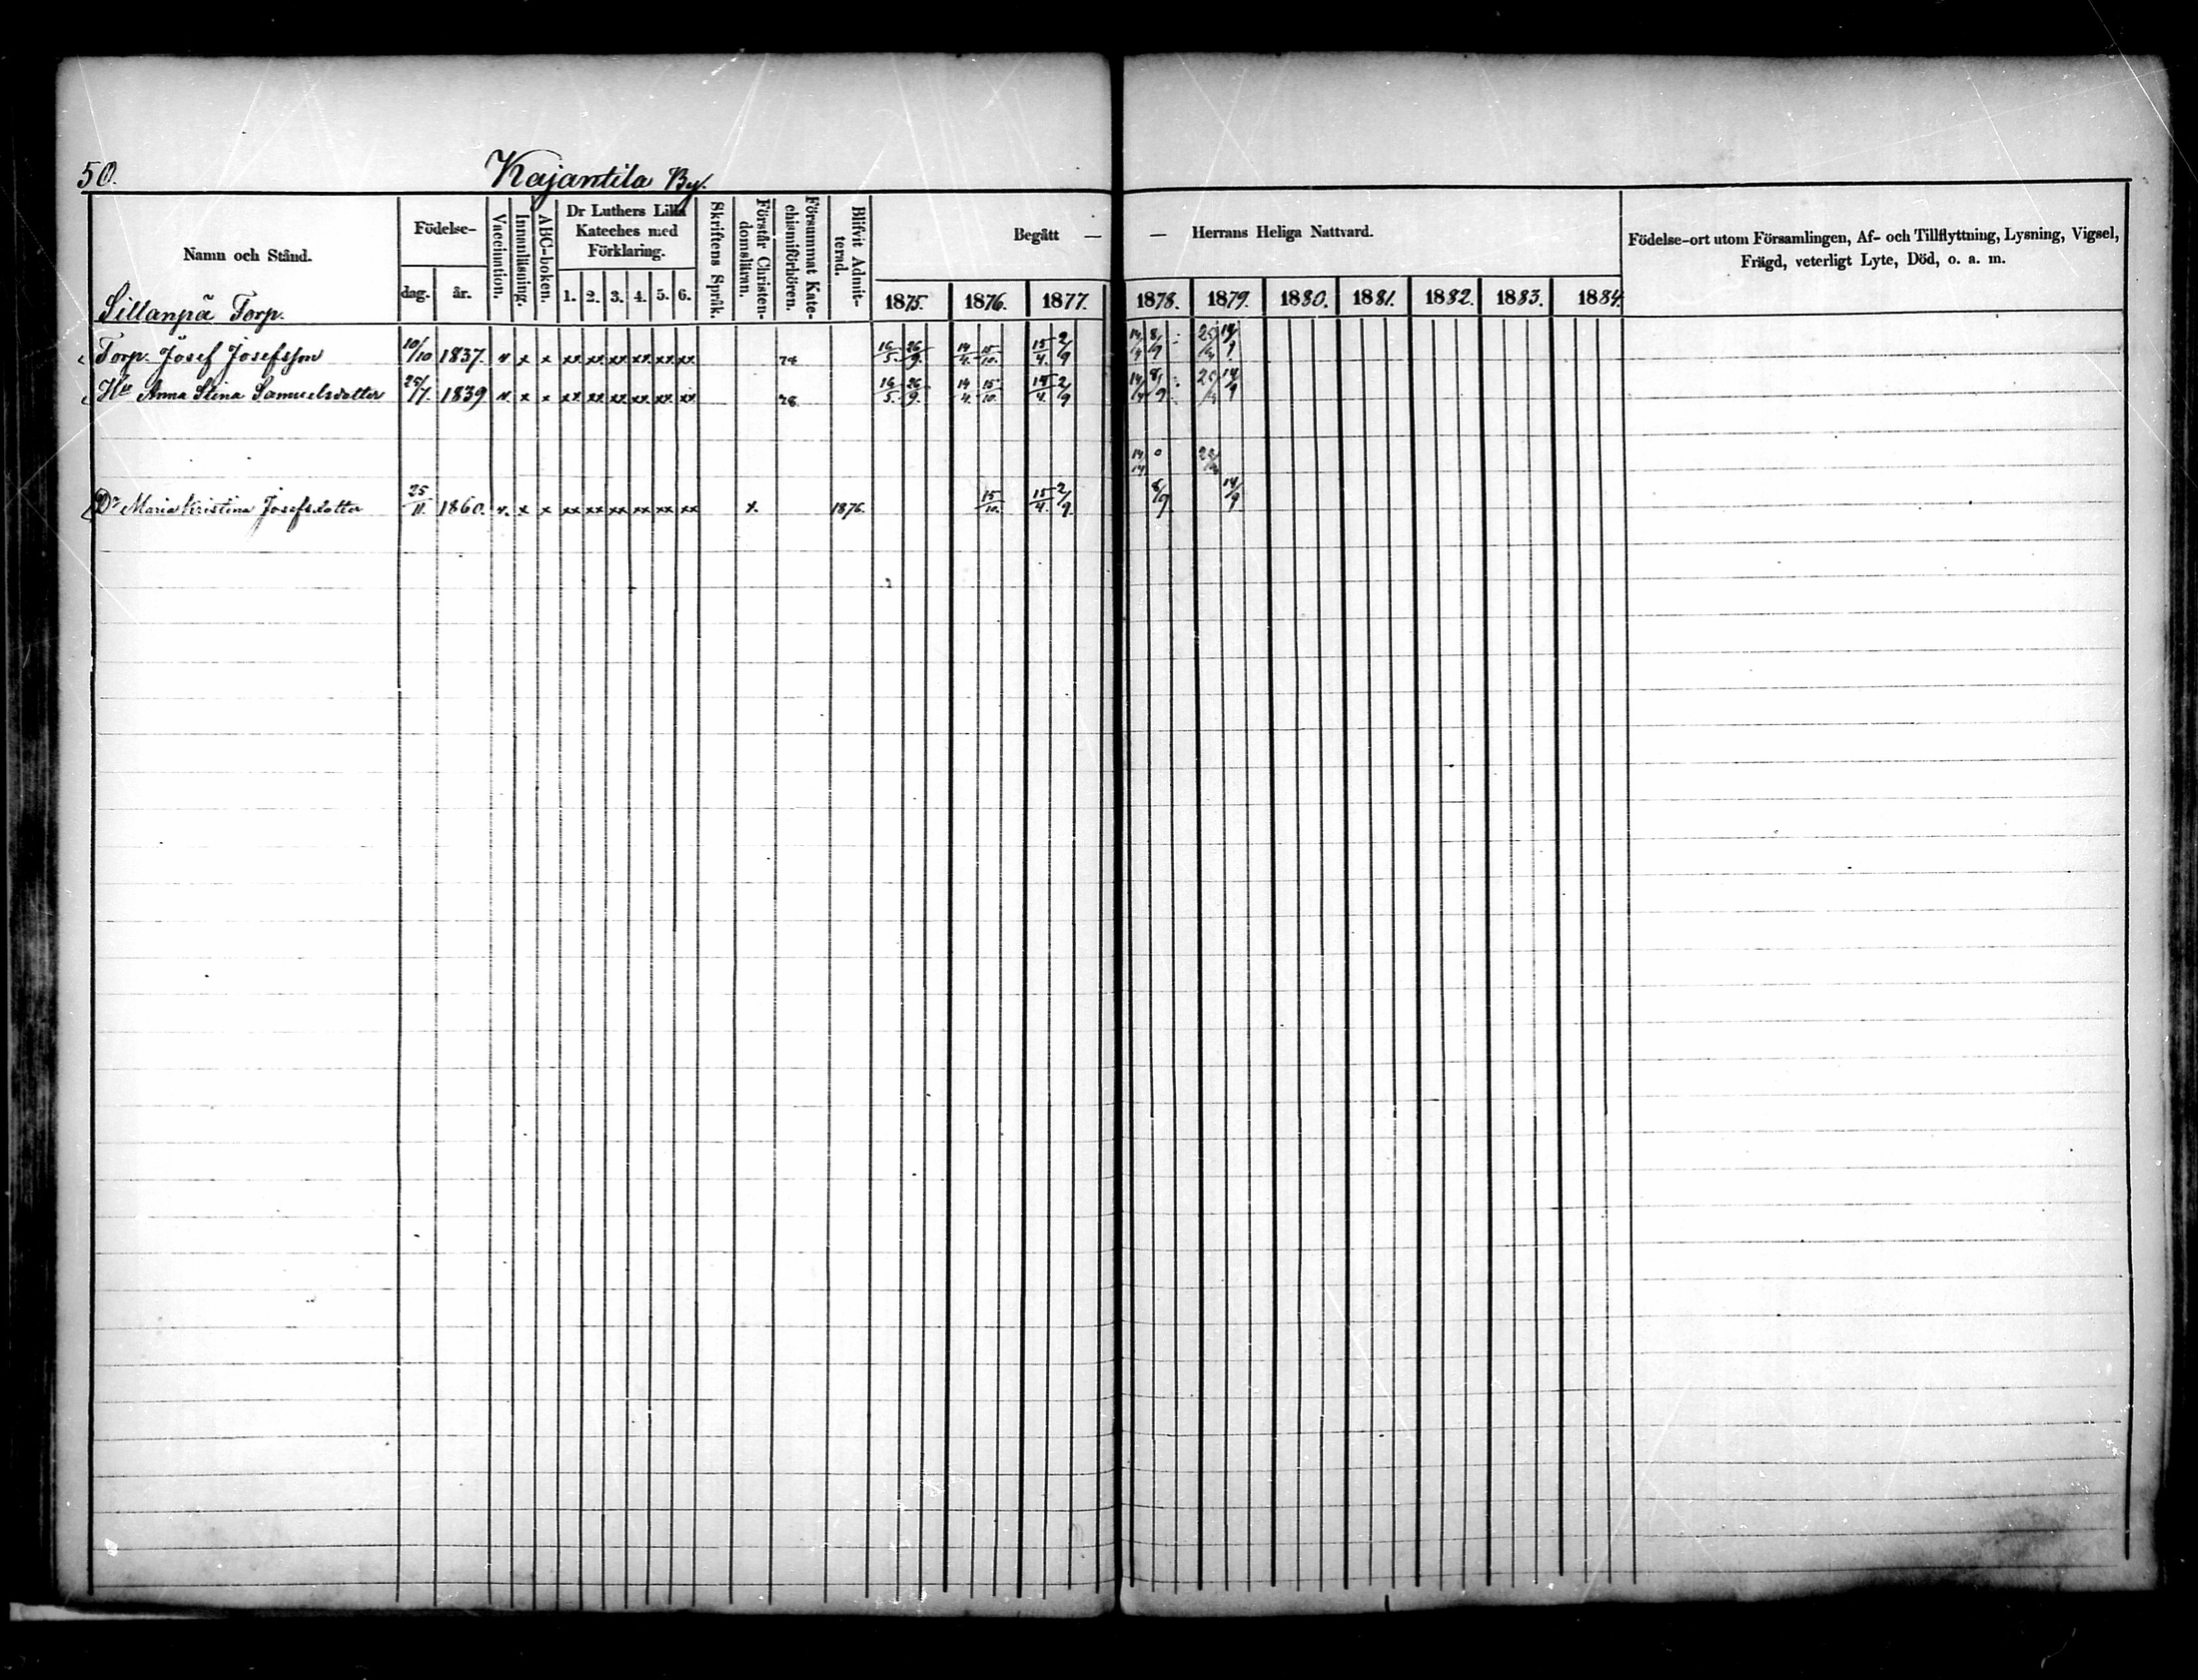 50. Kajantila By.
Namn och Stånd. Födelse- dag. år. Vaccination. Innanläsning. ABC-boken. Dr Luthers Lilla Kateches med Förklaring. 1. 2. 3. 4. 5. 6. Skriftens Språk. Förstår Christen-domsläran. Försummat Kate-chismiförhören. Blifvit Admit-terad. Begått — — Herrans Heliga Nattvard. Födelse-ort utom Församlingen, Af- och Tillflyttning, Lysning, Vigsel, Frägd, veterligt Lyte, Död, o. a. m.
1875. 1876. 1877. 1878. 1879. 1880. 1881. 1882. 1883. 1884.
Sillanpä Torp.
Torp. Josef Josefsson 10/10 1837. v x x xx xx xx xx xx xx 16/5. 26/9. 14/4. 15/10. 15/4. 2/9 14/4 8/9 14/9
Hu Anna Stina Samuelsdotter 25/7. 1839 v x x xx xx xx xx xx xx 16/5. 26/9. 14/4. 15/10. 2/9 14/4 8/9 14/9
Dr Maria Kristina Josefsdotter 25/11. 1860. v. x x xx xx xx xx xx xx x. 1876. 15/10. 15/4. 2/9. 8/9 14/9